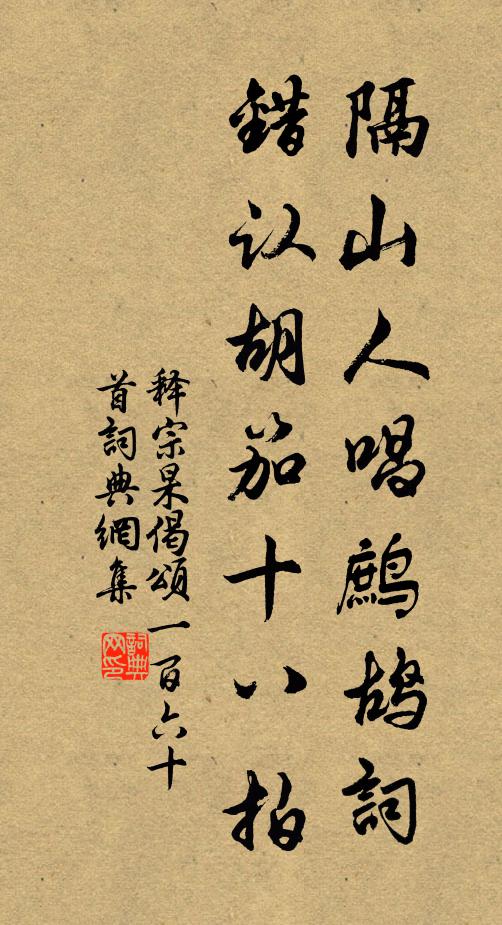 隔山人唱鷓鴣詞
錯认胡笳十八拍
释宗杲偈頌一百六十
首詞典網集
詞典网印